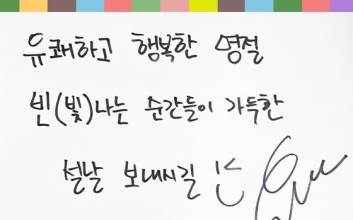 유쾌하고 행복한 명절
빈(빛)나는 순간들이 가득한
설날 보내시길